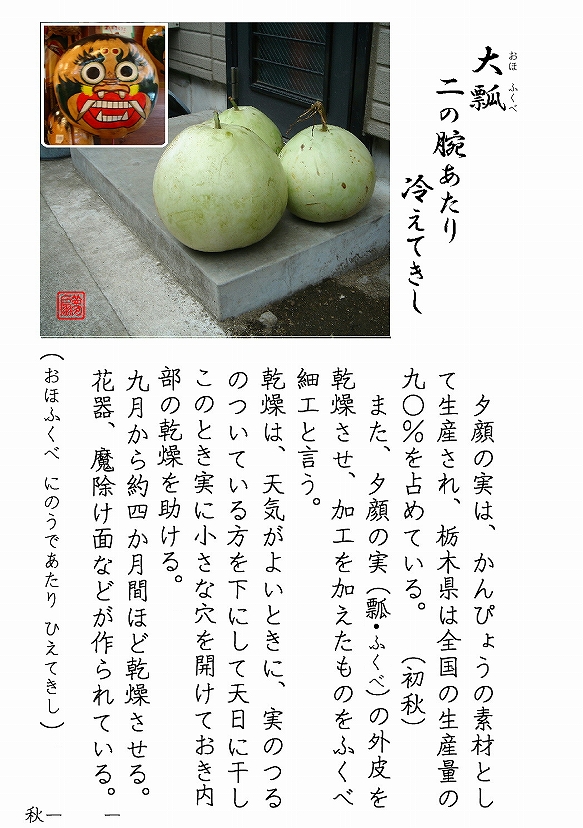 大瓢
おほ ふくべ
二の腕あたり
冷えてきし
夕顔の実は、かんぴょうの素材とし
て生産され、栃木県は全国の生産量の
九〇%を占めている。 (初秋)
また、夕顔の実(瓢・ふくべ)の外皮を
乾燥させ、加工を加えたものをふくべ
細工と言う。
乾燥は、天気がよいときに、実のつる
のついている方を下にして天日に干し
このとき実に小さな穴を開けておき内
部の乾燥を助ける。
九月から約四か月間ほど乾燥させる。
花器、魔除け面などが作られている。
(おほふくべ にのうであたり ひえてきし)
秋一 一